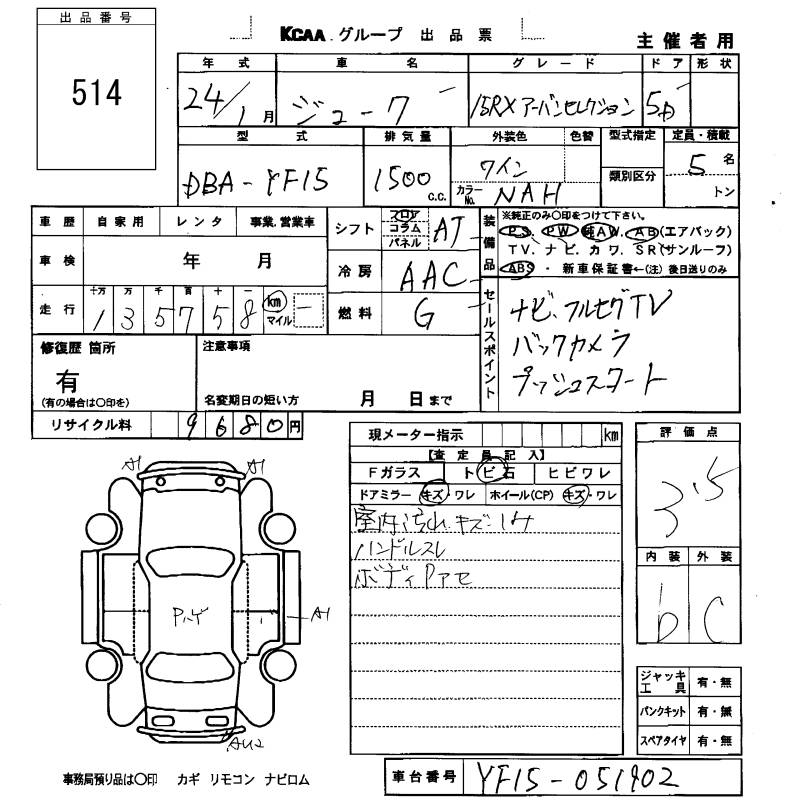 出品番号
514
KCAA グループ 出品票
主催者用
年式 車名 グレード ドア 形状
24/1月 ジューク 15RXアーバンセレクション 5D
型式 排気量 外装色 色替 型式指定 定員・積載
類別区分
DBA-YF15 1500 C.C. ワイン 5名
カラーNo. NAH トン
車歴 自家用 レンタ 事業.営業車
シフト フロア コラム パネル AT
装備品 ※純正のみ○印をつけて下さい。
PS, PW, 純AW, AB(エアバック)
TV. ナビ. カワ. SR(サンルーフ)
ABS・ 新車保証書←(注)後日送りのみ
車検 年 月
冷房 AAC
走行 十万 万 千 百 十 一
135758 km マイル
燃料 G
セールスポイント
ナビ、フルセグTV
バックカメラ
プッシュスタート
修復歴 箇所
有
(有の場合は○印を)
注意事項
名変期日の短い方 月 日まで
リサイクル料 9680円
現メーター指示 km
【査定員記入】
Fガラス トビ石 ヒビワレ
ドアミラー キズ・ワレ ホイール(CP) キズ・ワレ
室内汚れ.キズ.シミ
ハンドルスレ
ボディPアセ
評価点
3.5
内装 外装
b C
ジャッキ工具 有・無
パンクキット 有・無
スペアタイヤ 有・無
A1 A1
A1
AU2
事務局預り品は○印 カギ リモコン ナビロム
車台番号 YF15-051902